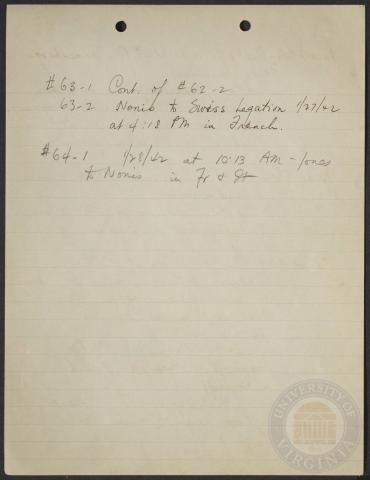 #63-1 Cont. of #62-2
63-2 Nonis to Swiss Legation 1/27/42
at 4:18 PM in French.
#64-1 1/28/42 at 10:13 AM - Jones
to Nonis in Fr &
UNIVERSITY OF VIRGINIA